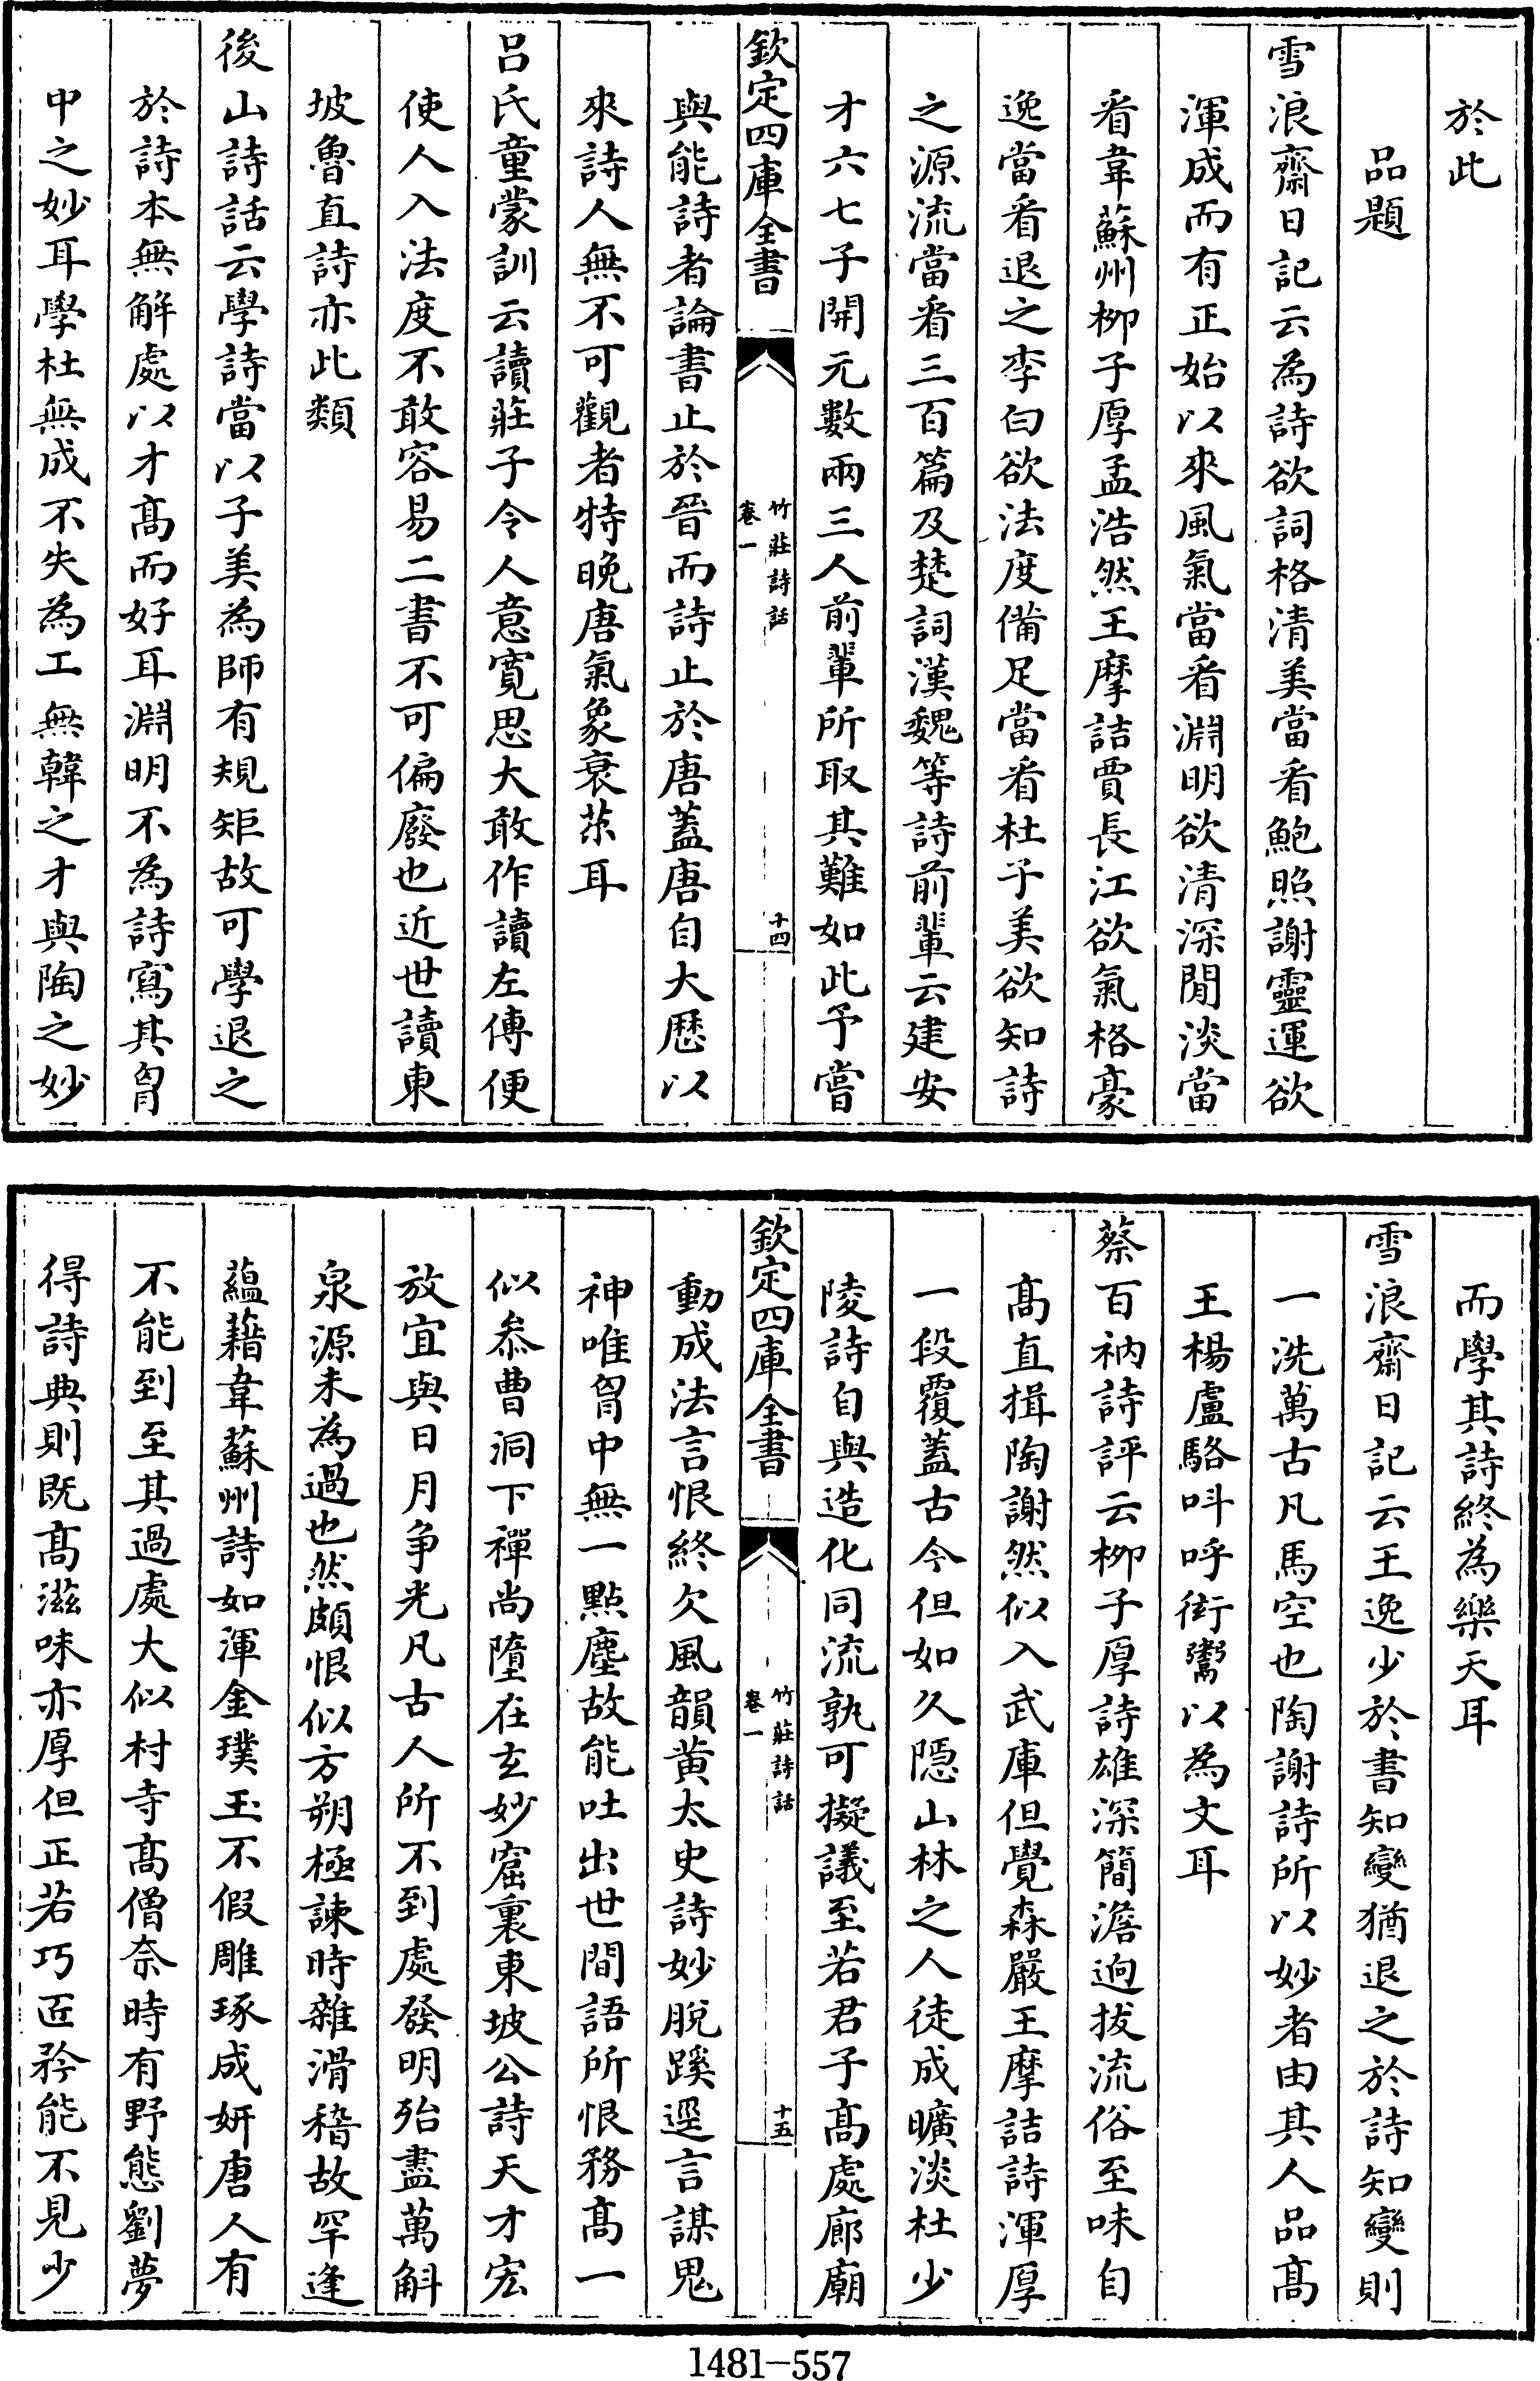 於此
品題
雪浪齋日記云為詩欲詞格清美當看鮑照謝靈運欲
渾成而有正始以來風氣當看淵明欲清深閒淡當
看韋蘇州柳子厚孟浩然王摩詰賈長江欲氣格豪
逸當看退之李白欲法度備足當看杜子美欲知詩
之源流當看三百篇及楚詞漢魏等詩前輩云建安
才六七子開元數兩三人前輩所取其難如此予嘗
欽定四庫全書
竹莊詩話
卷一
十四
與能詩者論書止於晉而詩止於唐蓋唐自大歷以
來詩人無不可觀者特晚唐氣象衰苶耳
呂氏童蒙訓云讀莊子令人意寬思大敢作讀左傳便
使人入法度不敢容易二書不可偏廢也近世讀東
坡魯直詩亦此類
後山詩話云學詩當以子美為師有規矩故可學退之
於詩本無解處以才髙而好耳淵明不為詩寫其胷
中之妙耳學杜無成不失為工無韓之才與陶之妙
而學其詩終為樂天耳
雪浪齋日記云王逸少於書知變猶退之於詩知變則
一洗萬古凡馬空也陶謝詩所以妙者由其人品髙
王楊盧駱呌呼衒鬻以為文耳
蔡百衲詩評云柳子厚詩雄深簡澹逈拔流俗至味自
髙直揖陶謝然似入武庫但覺森嚴王摩詰詩渾厚
一段覆蓋古今但如久隱山林之人徒成曠淡杜少
陵詩自與造化同流孰可擬議至若君子髙處廊廟
欽定四庫全書
竹莊詩話
卷一
十五
動成法言恨終欠風韻黄太史詩妙脫蹊逕言謀鬼
神唯胷中無一點塵故能吐出世間語所恨務髙一
似叅曹洞下禪尚墮在玄妙窟裏東坡公詩天才宏
放宜與日月争光凡古人所不到處發明殆盡萬斛
泉源未為過也然頗恨似方朔極諫時雜滑稽故罕逢
蘊藉韋蘇州詩如渾金璞玉不假雕琢成妍唐人有
不能到至其過處大似村寺髙僧奈時有野態劉夢
得詩典則既髙滋味亦厚但正若巧匠矜能不見少
1481-557